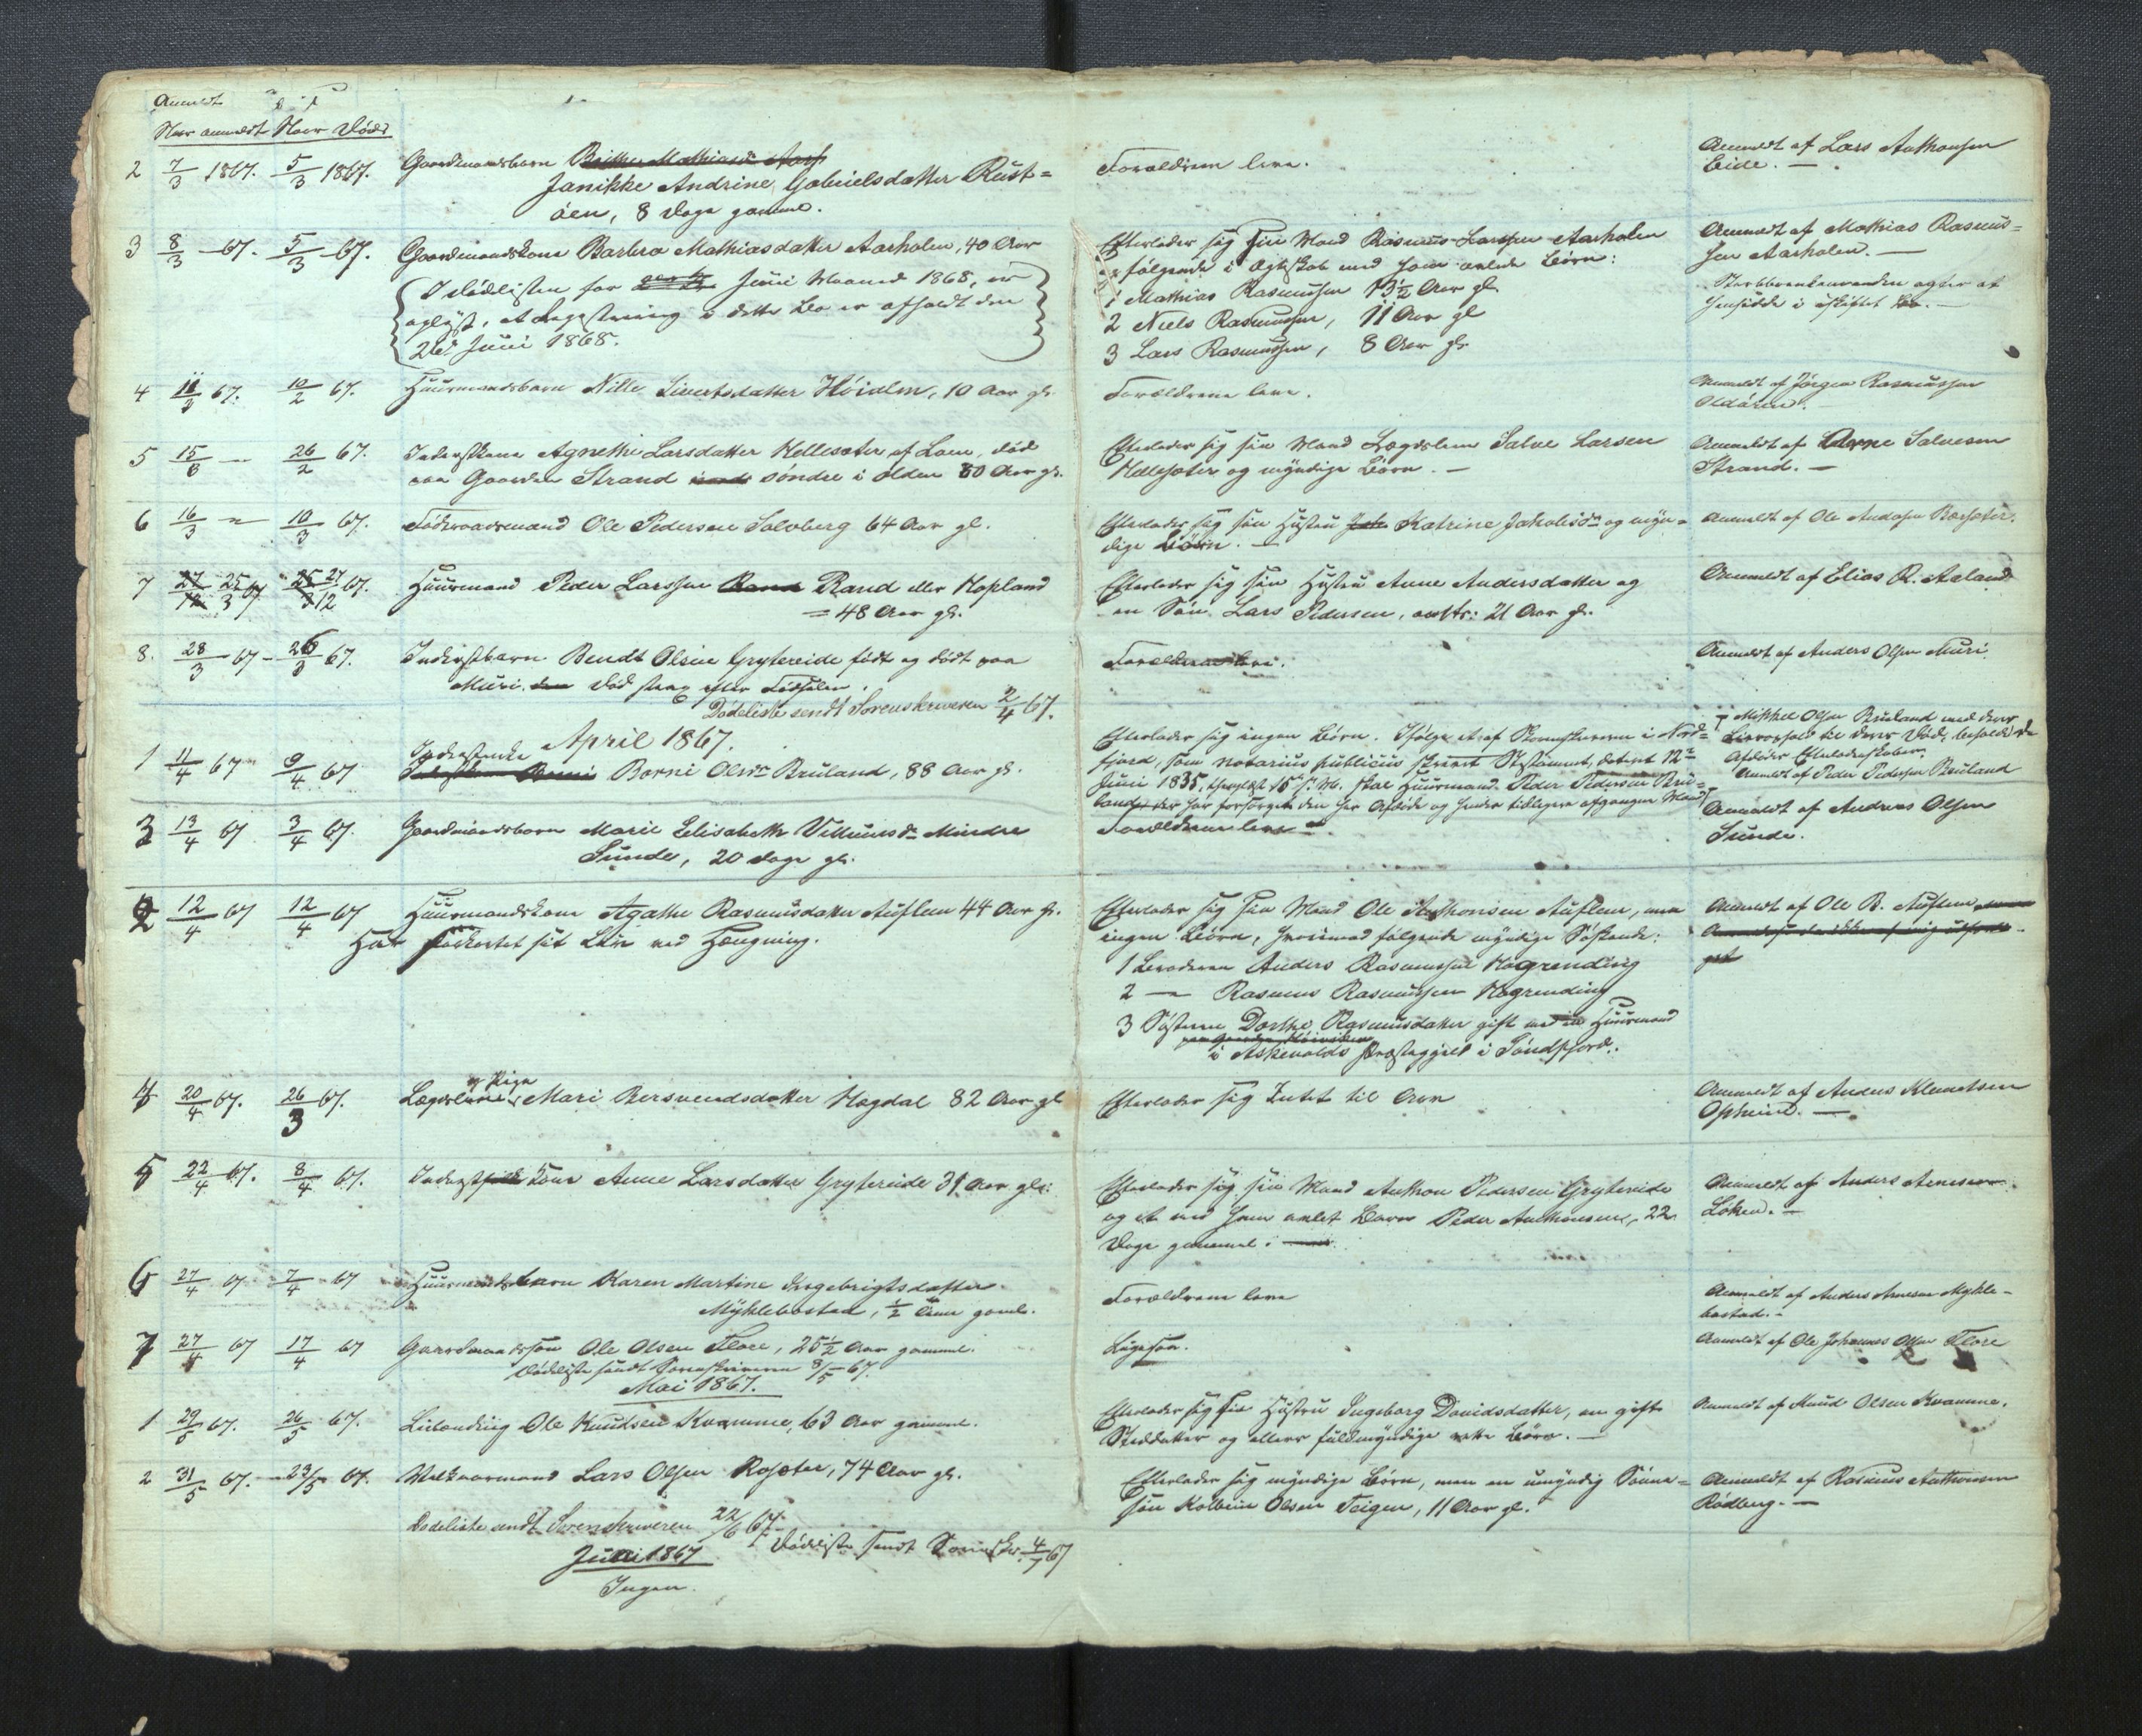 Anmeldt
Naar anmeldt Naar Døde
2 7/3 1867. 5/3 1867. Gaardmandsbarn Brithe Mathiasdr Aarh
Janikke Andrine Gabrielsdatter Rust=
øen, 8 Dage gammel.
Forældrene leve.
Anmeldt af Lars Anthonsen
Eide. —
3 8/3 — 67. 5/3 — 67. Gaardmandskone Barbra Mathiasdatter Aarholen, 40 Aar
(I Dødlisten for Juni Maaned 1868, er
oplyst, at Registrering i dette Bo er afholdt den
26de Juni 1868.)
Efterlader sig sin Mand Rasmus Larssen Aarholen
og følgende i Ægteskab med ham avlede Børn:
1 Mathias Rasmussen 13½ Aar gl.
2 Niels Rasmussen, 11 Aar gl
3 Lars Rasmussen, 8 Aar gl.
Anmeldt af Mathias Rasmus=
sen Aarholen. —
Sterbboenkemanden agter at
hensidde i uskiftet Bo. —
4 11/2 67. 10/2 67. Huusmandsbarn Nille Sivertsdatter Høidlen, 10 Aar gl.
Forældrene leve.
Anmeldt af Jørgen Rasmussen
Oldøren. —
5 15/3 — 26/2 67. Inderstkone Agnethe Larsdatter Hellesæter af Loen, død
paa Gaarden Strand søndre i Olden 60 Aar gl.
Efterlader sig sin Mand Lægdslem Salve Larsen
Hellesæter og myndige Børn. —
Anmeldt af Arne Salvesen
Strand. —
6 16/3 — 10/3 67. Føderaadsmand Ole Pedersen Solvberg 64 Aar gl.
Efterlader sig sin Hustru Joh Katrine Jakobsdr og myn=
dige Børn. —
Anmeldt af Ole Andersen Bæsæter.
7 27/12 25/3 67 25/3 27/12 67. Huusmand Peder Larssen Rand Rand eller Hopland
= 48 Aar gl.
Efterlader sig sin Hustru Anne Andersdatter og
en Søn Lars Pedersen, 21 Aar gl.
Anmeldt af Elias R. Aaland
8. 28/3 67 — 26/3 67. Inderstbarn Bendt Olsen Grytereide født og død paa
Muri. død strax efter Fødselen.
Forældrene leve.
Anmeldt af Anders Olsen Muri
Dødeliste sendt Sorenskriveren 2/4 67.
April 1867.
1 11/4 67 9/4 67 Inderstenke
Borni Olsdr Bruland, 88 Aar gl.
Efterlader sig ingen Børn. Ifølge et af Sorenskriveren i Nord=
fjord, som notarius publicus skrevet Testament, dateret 12te
Juni 1835, skal Huusmand Peder Pedersen Bru=
land, der har forsørget den her Afdøde og hendes tidligere afgangne Mand
Mikkel Olsen Bruland med deres
Livsophold til deres Død, beholde de
Afdødes Efterladenskaber.
Anmeldt af Peder Pedersen Bruland
3 13/4 67 3/4 67. Gaardmandsbarn Marie Elisabeth Villumsdr Mindre
Sunde, 20 Dage gl.
Forældrene leve —
Anmeldt af Andreas Olsen
Sunde.
2 12/4 67 12/4 67 Huusmandskone Agathe Rasmusdatter Auflem 44 Aar gl.
Har forkortet sit Liv ved Hængning.
Efterlader sig sin Mand Ole Anthonsen Auflem, men
ingen Børn, hvorimod følgende myndige Søskende:
1 Broderen Anders Rasmussen Hogrending
2 — Rasmus Rasmussen Hogrending
3 Søsteren Dorthe Rasmusdatter gift med en Huusmand
i Askevolds Præstegjeld i Søndfjord.
Anmeldt af Ole B. Auflem
4 20/4 67. 26/3 67. Lægdslem og Pige Mari Bersvendsdatter Hogdal 82 Aar gl
Efterlader sig Intet til Arv
Anmeldt af Anders Klemetsen
Opheim. —
5 22/4 67. 8/4 67. Inderst kone Anne Larsdatter Grytereide 31 Aar gl.
Efterlader sig sin Mand Anthon Pedersen Grytereide
og et med ham avlet Barn Peder Anthonsen, 22
Dage gammel.
Anmeldt af Anders Arnesen
Løken. —
6 27/4 67 7/4 67 Huusmandsbarn Karen Martine Ingebrigtsdatter
Myklebostad, ½ Aar gaml.
Forældrene leve
Anmeldt af Anders Arnesen Mykle=
bostad. -
7 27/4 67 17/4 67 Gaardmandssøn Ole Olsen Flore, 25½ Aar gammel.
Ligesaa.
Anmeldt af Ole Johannes Olsen Flore
Dødliste sendt Sorenskriveren 8/5 67.
Mai 1867.
1 29/5 67. 26/5 67. Ole Knudsen Kvamme, 63 Aar gammel.
Efterlader sig sin Hustru Ingeborg Davidsdatter, en gift
Steddatter og ellers fuldmyndige ægte Børn. —
Anmeldt af Knud Olsen Kvamme.
2 31/5 67. 23/5 67. Velkaarmand Lars Olsen Rosæter, 74 Aar gl.
Efterlader sig myndige Børn, men en umyndig Sønne=
søn Kolbein Olsen Teigen, 11 Aar gl.
Anmeldt af Rasmus Anthonsen
Rødberg. —
Dødeliste sendt Sorenskriveren 22/6 67.
Dødliste sendt Sorenskr. 4/7 67
Juni 1867
Ingen.